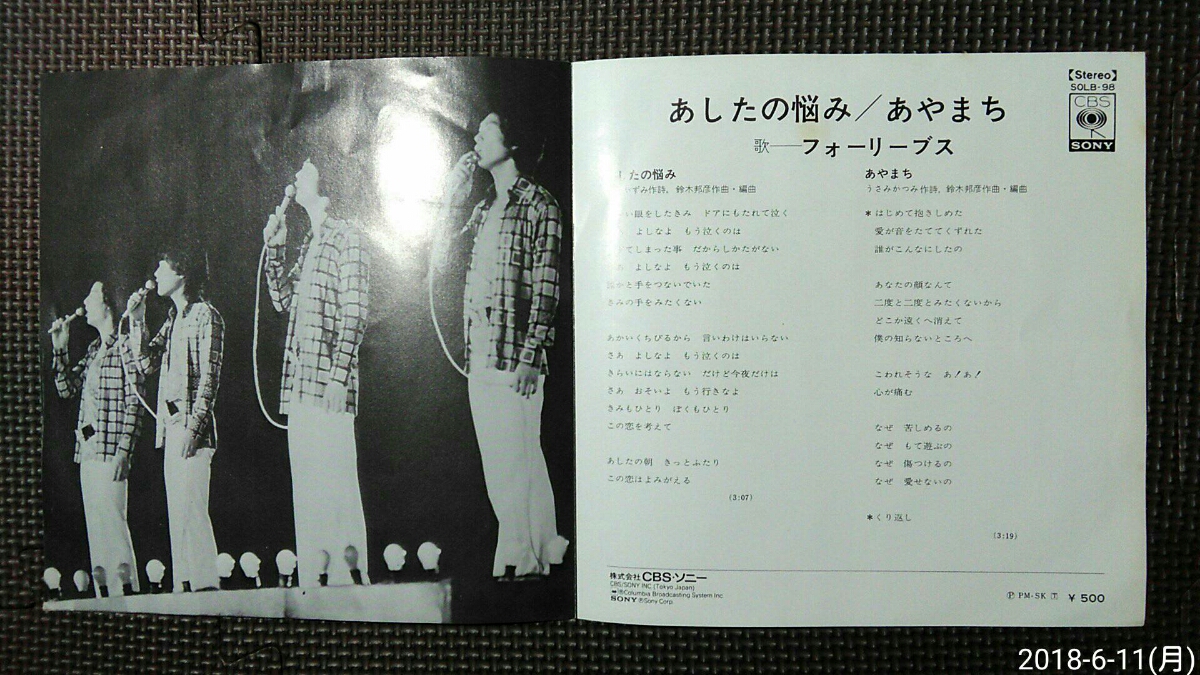 【Stereo】
SOLB-98
CBS
SONY
あしたの悩み/あやまち
歌──フォーリーブス
たの悩み
ずみ作詩、鈴木邦彦作曲・編曲
い眼をしたきみ ドアにもたれて泣く
よしなよ もう泣くのは
てしまった事 だからしかたがない
あ よしなよ もう泣くのは
と手をつないでいた
きみの手をみたくない
あかいくちびるから 言いわけはいらない
さあ よしなよ もう泣くのは
きらいにはならない だけど今夜だけは
さあ おそいよ もう行きなよ
きみもひとり ぼくもひとり
この恋を考えて
あしたの朝 きっとふたり
この恋はよみがえる
(3:07)
あやまち
うさみかつみ作詩、鈴木邦彦作曲・編曲
*はじめて抱きしめた
愛が音をたててくずれた
誰がこんなにしたの
あなたの顔なんて
二度と二度とみたくないから
どこか遠くへ消えて
僕の知らないところへ
こわれそうな あ!あ!
心が痛む
なぜ 苦しめるの
なぜ もて遊ぶの
なぜ 傷つけるの
なぜ 愛せないの
*くり返し
(3:19)
株式会社CBS・ソニー
CBS/SONY INC.(Tokyo Japan)
Columbia Broadcasting System Inc.
SONY ®Sony Corp.
Ⓟ PM-SK
¥500
2018-6-11(月)